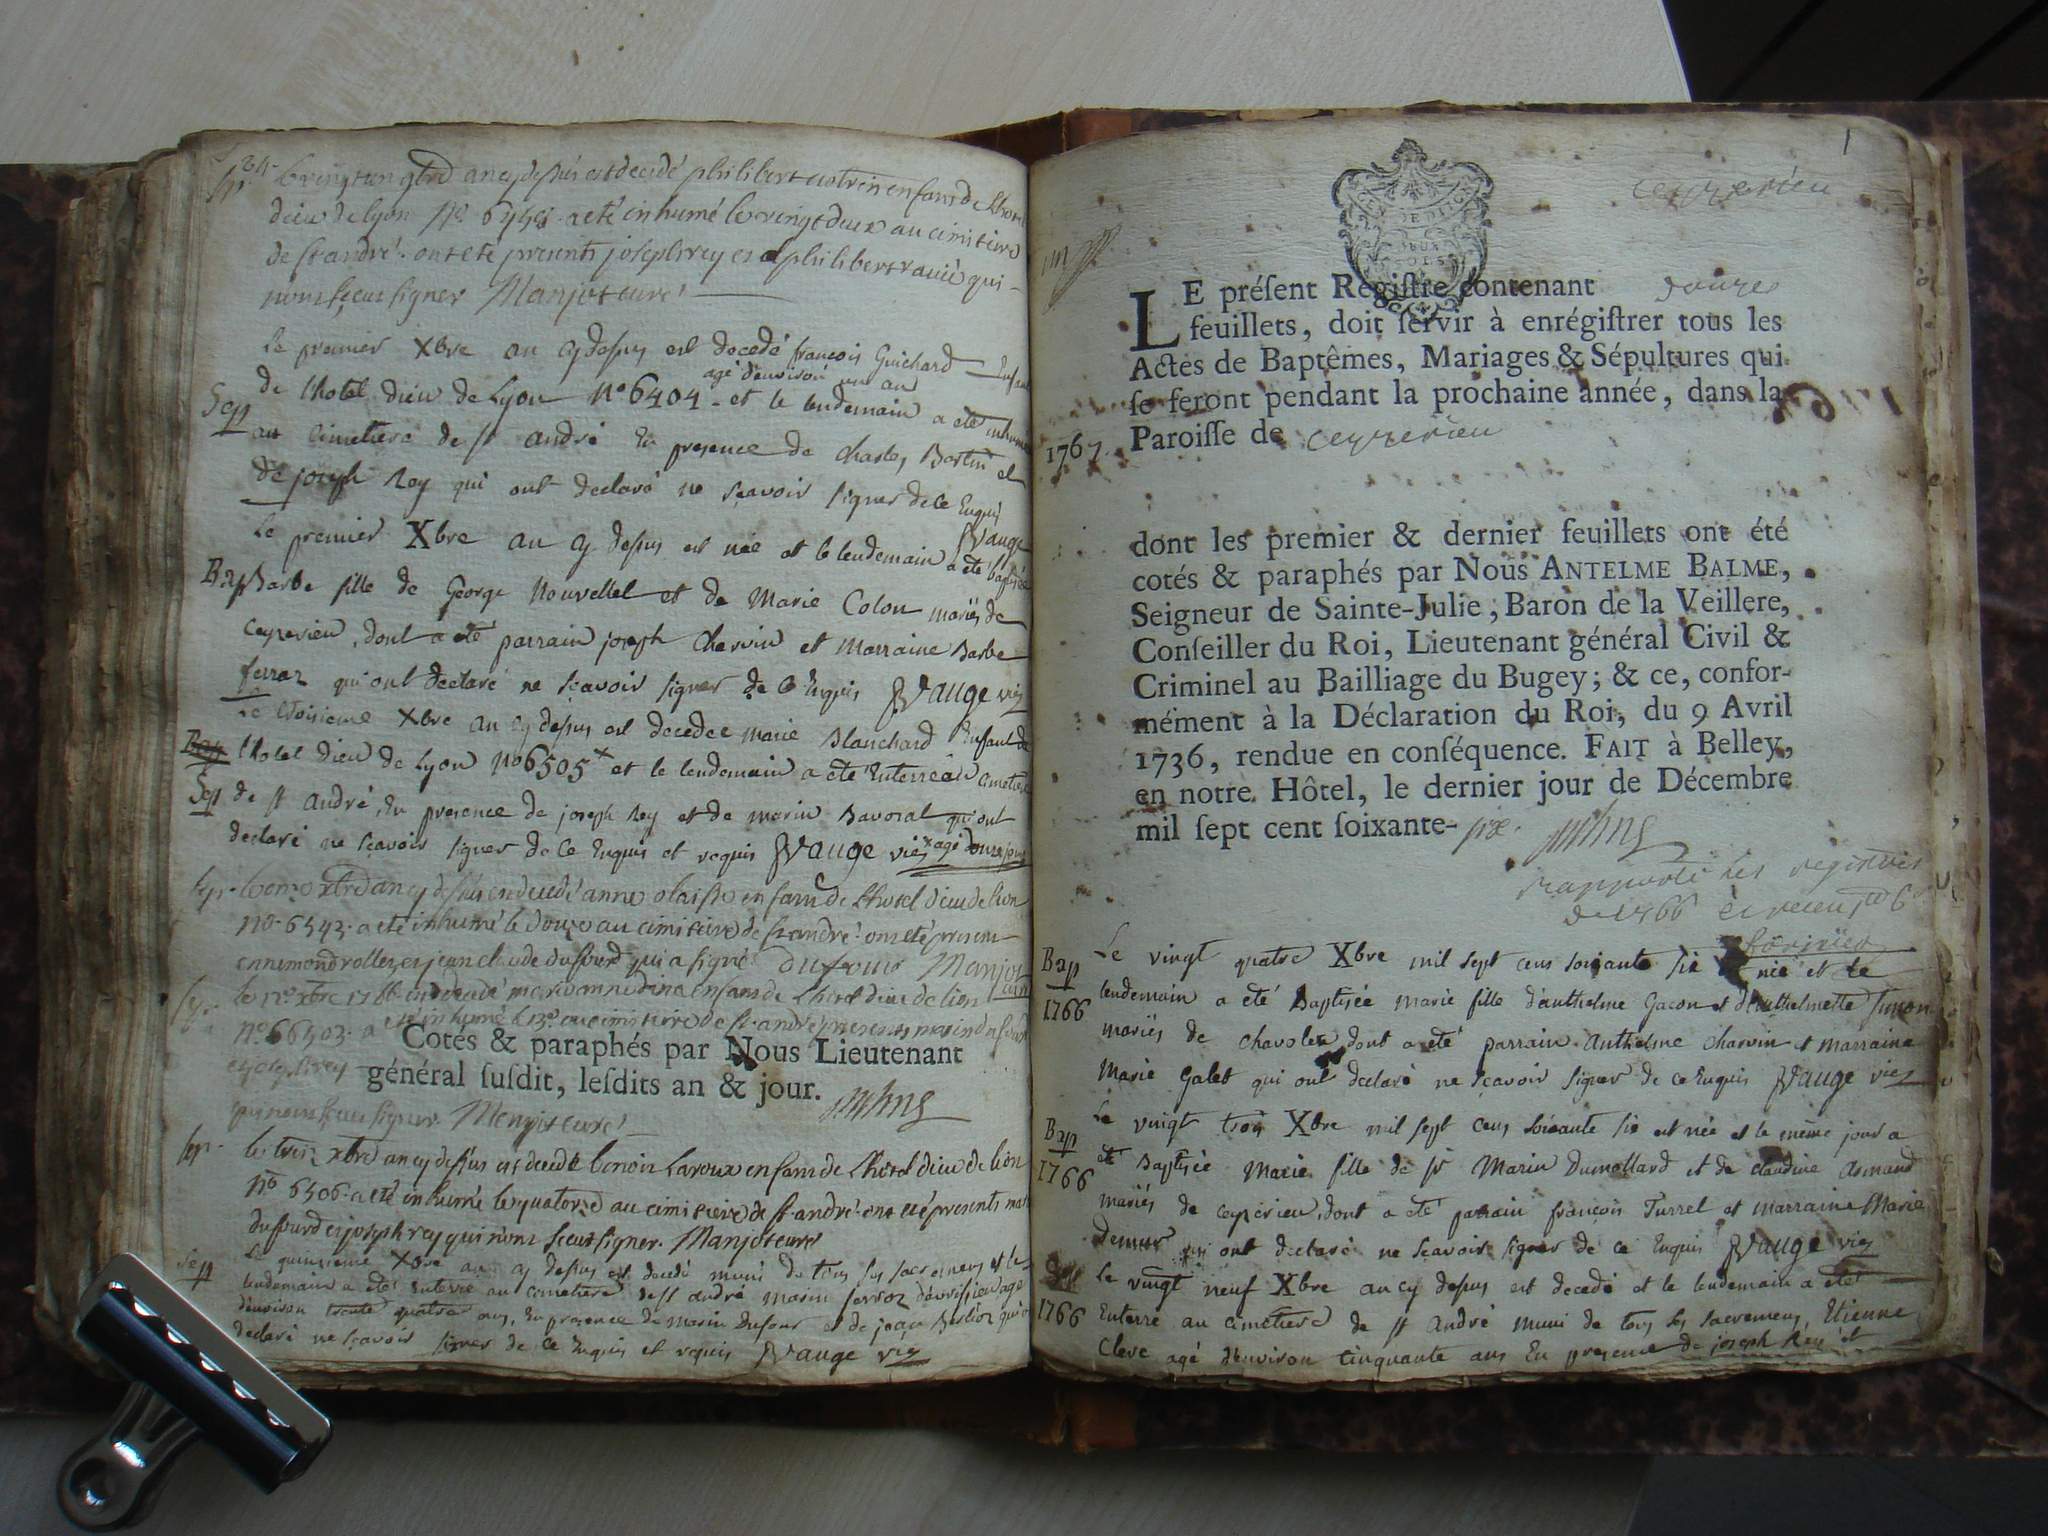 dieu de lyon N° 6455 a eté inhumé le vingt deux au cimitiere
de st andré. ont eté presents joseph rey et philibert ravié qui
nont sceu signer Manjot curé
Le premier Xbre an cy dessus est decedé françois Guichard Enfant
agé d'environ un an
de l'hotel dieu de Lyon N° 6404 - et le lendemain a eté inhumé
Sep
au cimetiere de st andré En presence de charles Bertin et
de joseph Rey qui ont declaré ne scavoir signer de ce Enquis
JVauge
Le premier Xbre an cy dessus est née et le lendemain a eté baptisée
Bap Barbe fille de George Nouvellet et de Marie Colon mariés de
Ceyzerieu, dont a eté parrain joseph Charvin et Marraine Barbe
ferraz qui ont declaré ne scavoir signer de ce Enquis JVauge vic
Le troisieme Xbre an cy dessus est decedee marie Blanchard Enfant de
Bap l'hotel dieu de Lyon N° 6505 + et le lendemain a eté Enterrée au cimetiere
Sep de st andré, En presence de joseph Rey et de marin Bavoral qui ont
declaré ne scavoir signer de ce Enquis et requis JVauge vic + agé douze jours
sep. le onze xbre an cy dessus en decedé anne enfant de l'hotel dieu de lion
n° 6543 a eté inhumé le douze au cimitiere de st andré ont eté presents
ennemond rollet et jean claude dufourd qui a signé dufour Manjot
curé
sep. le 12e xbre 1766 en decedé marianne enfant de l'hotel dieu de lion
N° 66503 a eté inhumé le 13e au cimitiere de st andré presents marin dufourd
Cotés & paraphés par Nous Lieutenant
et joseph rey
général susdit, lesdits an & jour.
qui nont sceu signer Manjot curé
sep. le treize xbre an cy dessus est decedé benoit Laroux enfant de l'hotel dieu de lion
N° 6506 a eté inhumé le quatorze au cimitiere de st andré ont eté presents marin
dufourd et joseph rey qui n'ont sceu signer. Manjot curé
Sep Le quinzieme Xbre an cy dessus est decedé muni de tous ses sacremens et le
lendemain a eté Enterré au cimetiere de st andré marin ferroz agé
d'environ trente quatre ans, En presence de marin Dufour et de jean Berlioz qui ont
declaré ne scavoir signer de ce Enquis et requis JVauge vic
1
ceyzerieu
LE présent Registre contenant douze
feuillets, doit servir à enrégistrer tous les
Actes de Baptêmes, Mariages & Sépultures qui
se feront pendant la prochaine année, dans la
1767. Paroisse de ceyzerieu
dont les premier & dernier feuillets ont été
cotés & paraphés par Nous ANTELME BALME,
Seigneur de Sainte-Julie, Baron de la Veillere,
Conseiller du Roi, Lieutenant général Civil &
Criminel au Bailliage du Bugey; & ce, confor-
mément à la Déclaration du Roi, du 9 Avril
1736, rendue en conséquence. FAIT à Belley,
en notre Hôtel, le dernier jour de Décembre
mil sept cent soixante-six.
rapporté les registres
de 1766
fevrier
Bap Le vingt quatre Xbre mil sept cens soixante six est née et le
1766 lendemain a eté Baptisée marie fille d'anthelme Gacon et d'anthelmette Simon
mariés de chavolex, dont a eté parrain Anthelme charvin et marraine
Marie Galet qui ont declaré ne scavoir signer de ce Enquis JVauge vic
Bap Le vingt trois Xbre mil sept cens soixante six est née et le même jour a
1766 eté Baptisée Marie fille de sr Marin Dumollard et de claudine Armand
mariés de ceyzerieu, dont a eté parrain françois Turrel et marraine Marie
Demur qui ont declaré ne scavoir signer de ce Enquis JVauge vic
Le vingt neuf Xbre an cy dessus est decedé et le lendemain a eté
1766 Enterré au cimetiere de st André muni de tous ses sacremens, Etienne
Clerc agé d'environ cinquante ans En presence de joseph Rey et